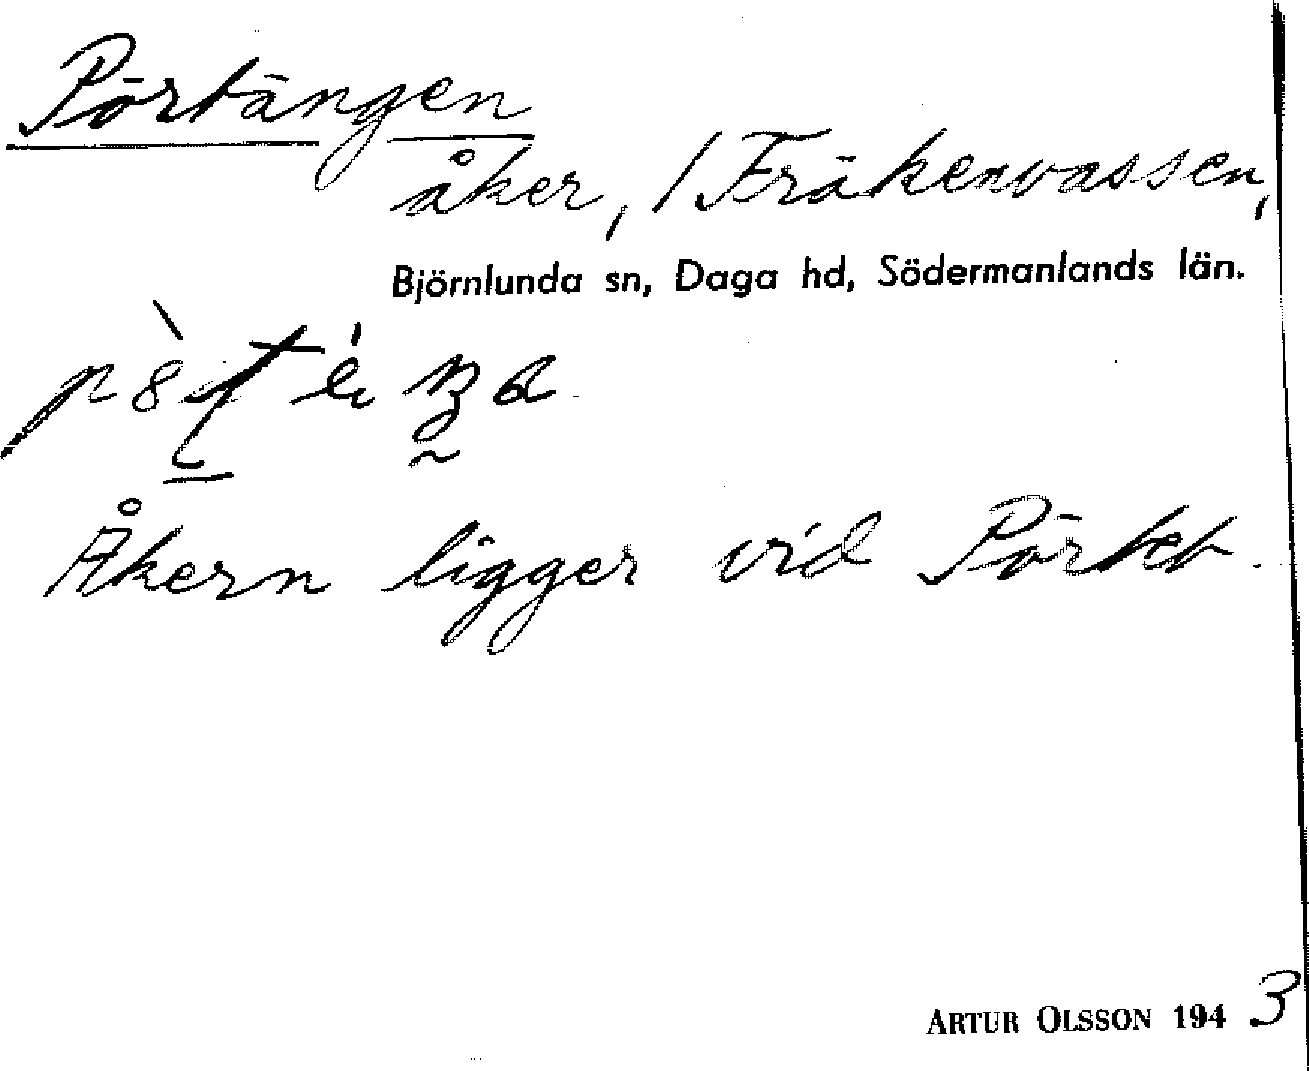 Pörtängen
åker, / Fräkenvassen,
Björnlunda sn, Daga hd, Södermanlands län.
Åkern ligger vid Pörtet.
ARTUR OLSSON 1943